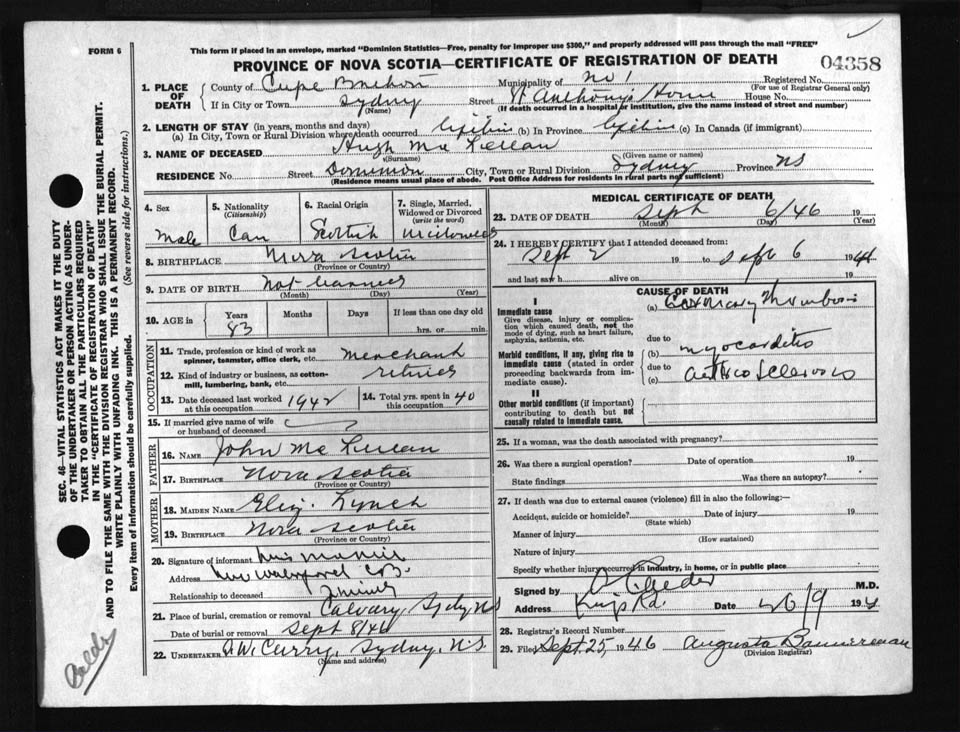 FORM 6
This form if placed in an envelope, marked "Dominion Statistics—Free, penalty for improper use $300," and properly addressed will pass through the mail "FREE"
PROVINCE OF NOVA SCOTIA—CERTIFICATE OF REGISTRATION OF DEATH
04358
1. PLACE OF DEATH
County of Cape Breton Municipality of No 1 Registered No.
(For use of Registrar General only)
If in City or Town Sydney Street St Anthony's Home House No.
(Name) (If death occurred in a hospital or institution, give the name instead of street and number)
2. LENGTH OF STAY (in years, months and days)
(a) In City, Town or Rural Division where death occurred lifetime (b) In Province lifetime (c) In Canada (if immigrant)
3. NAME OF DECEASED Hugh Mc Lellan
(Surname) (Given name or names)
RESIDENCE No. Street Dominion City, Town or Rural Division Sydney Province NS
(Residence means usual place of abode. Post Office Address for residents in rural parts not sufficient)
4. Sex
Male
5. Nationality
(Citizenship)
Can
6. Racial Origin
Scottish
7. Single, Married, Widowed or Divorced
(write the word)
Widowed
8. BIRTHPLACE Nova Scotia
(Province or Country)
9. DATE OF BIRTH Not learned
(Month) (Day) (Year)
10. AGE in
Years Months Days If less than one day old
83 hrs. or min.
OCCUPATION
11. Trade, profession or kind of work as spinner, teamster, office clerk, etc. Merchant
12. Kind of industry or business, as cotton-mill, lumbering, bank, etc. retired
13. Date deceased last worked at this occupation 1942
14. Total yrs. spent in this occupation 40
15. If married give name of wife or husband of deceased ?
FATHER
16. NAME John Mc Lellan
17. BIRTHPLACE Nova Scotia
(Province or Country)
MOTHER
18. MAIDEN NAME Eliz. Lynch
19. BIRTHPLACE Nova Scotia
(Province or Country)
20. Signature of informant
Address New Waterford CB.
Relationship to deceased
21. Place of burial, cremation or removal Calvary, Sydney NS
Date of burial or removal Sept 8/46
22. UNDERTAKER A.W. Curry, Sydney, N.S.
(Name and address)
MEDICAL CERTIFICATE OF DEATH
23. DATE OF DEATH Sept 6/46 19
(Month) (Day) (Year)
24. I HEREBY CERTIFY that I attended deceased from:
Sept 2 19 to Sept 6 194
and last saw h alive on 19
CAUSE OF DEATH
I
Immediate cause
Give disease, injury or complication which caused death, not the mode of dying, such as heart failure, asphyxia, asthenia, etc.
(a) Coronary Thrombosis
due to
Morbid conditions, if any, giving rise to immediate cause (stated in order proceeding backwards from immediate cause).
(b) myocarditis
due to
(c) arterio Sclerosis
II
Other morbid conditions (if important) contributing to death but not causally related to immediate cause.
25. If a woman, was the death associated with pregnancy?
26. Was there a surgical operation? Date of operation 19
State findings Was there an autopsy?
27. If death was due to external causes (violence) fill in also the following:—
Accident, suicide or homicide? Date of injury 19
(State which)
Manner of injury
(How sustained)
Nature of injury
Specify whether injury occurred in industry, in home, or in public place
Signed by M.D.
Address Kings Rd. Date 194
28. Registrar's Record Number
29. Filed Sept. 25, 1946 Augusta Bannerman
(Division Registrar)
SEC. 46—VITAL STATISTICS ACT MAKES IT THE DUTY
OF THE UNDERTAKER OR PERSON ACTING AS UNDER-
TAKER TO OBTAIN ALL THE PARTICULARS REQUIRED
IN THE "CERTIFICATE OF REGISTRATION OF DEATH"
AND TO FILE THE SAME WITH THE DIVISION REGISTRAR WHO SHALL ISSUE THE BURIAL PERMIT.
WRITE PLAINLY WITH UNFADING INK. THIS IS A PERMANENT RECORD.
Every item of information should be carefully supplied. (See reverse side for instructions.)